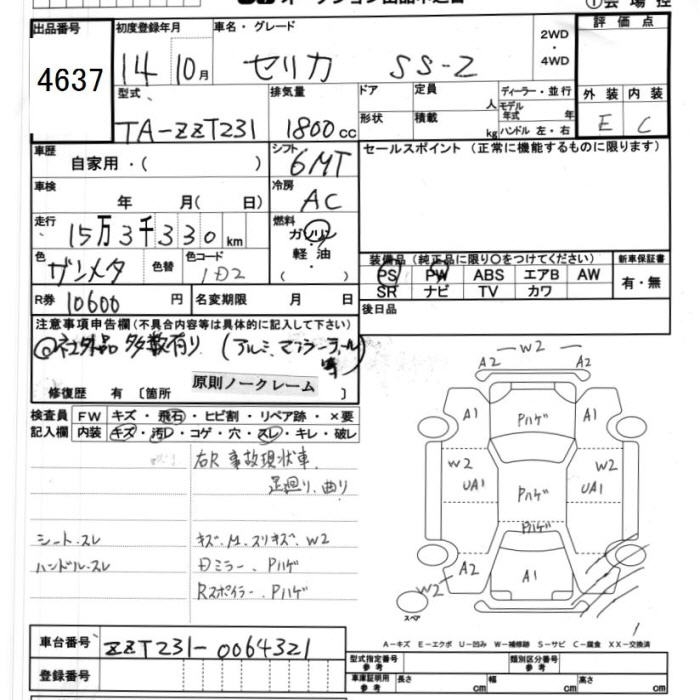 ①会場控
出品番号 初度登録年月 車名・グレード 2WD・4WD 評価点
4637 14年10月 セリカ SS-Z
型式 排気量 ドア 定員 人 ディーラー・並行 外装 内装
TA-ZZT231 1800cc 形状 積載 kg モデル年式 年 ハンドル 左・右 E C
車歴 自家用・( ) シフト 6MT セールスポイント(正常に機能するものに限ります)
車検 年 月( 日) 冷房 AC
走行 15万3千330km 燃料 ガソリン・軽油・( )
色 ガンメタ 色替 色コード 1D2 装備品(純正品に限り○をつけてください) 新車保証書
PS PW ABS エアB AW 有・無
SR ナビ TV カワ
R券 10600円 名変期限 月 日 後日品
注意事項申告欄(不具合内容等は具体的に記入して下さい)
◎社外品多数有り (アルミ、マフラー、ラール等)
修復歴 有 〔箇所 原則ノークレーム 〕
検査員 FW キズ・飛石・ヒビ割・リペア跡・×要
記入欄 内装 キズ・汚レ・コゲ・穴・スレ・キレ・破レ
右R 事故現状車、
足廻り、曲り
シート、スレ キズ、M、スリキズ、W2
ハンドル、スレ Dミラー、Pハゲ
Rスポイラー、Pハゲ
W2
A2 A2
A1 Pハゲ A1
W2 W2
UA1 Pハゲ UA1
Pハゲ
A2 A1
W2
スペア
A-キズ E-エクボ U-凹み W-補修跡 S-サビ C-腐食 XX-交換済
車台番号 ZZT231-0064321
型式指定番号 参考 類別区分番号 参考
登録番号 車庫証明用 参考 長さ cm 幅 cm 高さ cm